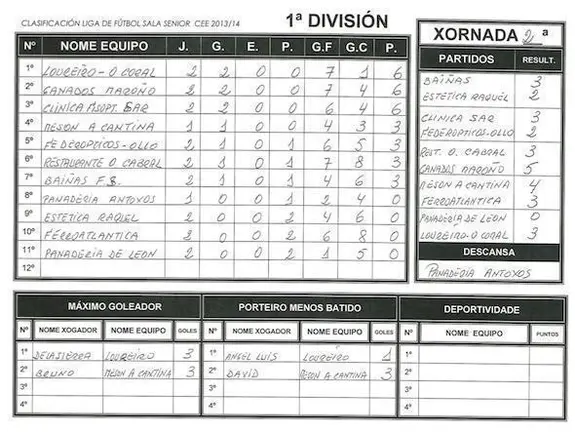 CLASIFICACIÓN LIGA DE FÚTBOL SALA SENIOR CEE 2013/14 1ª DIVISIÓN
Nº NOME EQUIPO J. G. E. P. G.F G.C P.
1º LOUREIRO - O CORAL 2 2 0 0 7 1 6
2º GANADOS MAROÑO 2 2 0 0 7 4 6
3º CLINICA ASOPT. SAR 2 2 0 0 6 4 6
4º MESON A CANTINA 1 1 0 0 4 3 3
5º FEDEROPTICOS - OLLO 2 1 0 1 6 5 3
6º RESTAURANTE O CABRAL 2 1 0 1 7 8 3
7º BAIÑAS F.S. 2 1 0 1 4 6 3
8º PANADERIA ANTOXOS 1 0 0 1 2 4 0
9º ESTETICA RAQUEL 2 0 0 2 4 6 0
10º FERROATLANTICA 2 0 0 2 6 8 0
11º PANADERIA DE LEON 2 0 0 2 1 5 0
12º
XORNADA 2 ª
PARTIDOS RESULT.
BAIÑAS 3
ESTETICA RAQUEL 2
CLINICA SAR 3
FEDEROPTICOS-OLLO 2
REST. O. CABRAL 3
GANADOS MAROÑO 5
MESON A CANTINA 4
FERROATLANTICA 3
PANADERIA DE LEON 0
LOUREIRO-O CORAL 3
DESCANSA
PANADERIA ANTOXOS
MÁXIMO GOLEADOR
Nº NOME XOGADOR NOME EQUIPO GOLES
1º DELASIERRA LOUREIRO 3
2º BRUNO MESON A CANTINA 3
3º
4º
PORTEIRO MENOS BATIDO
Nº NOME XOGADOR NOME EQUIPO GOLES
1º ANGEL LUIS LOUREIRO 1
2º DAVID MESON A CANTINA 3
3º
4º
DEPORTIVIDADE
Nº NOME EQUIPO PUNTOS
1º
2º
3º
4º